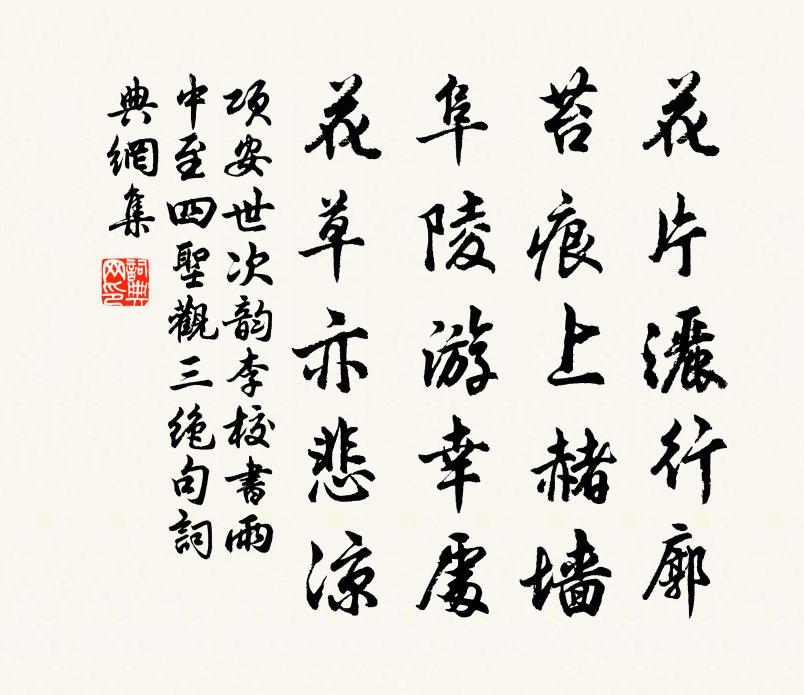 花片灑行廓
苔痕上赭墙
阜陵游幸處
花草亦悲凉
項安世次韵李校書雨
中至四聖觀三絶句詞
典網集
詞典
网印